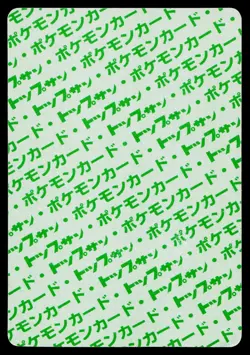 ポケモンカード・
トップサン・ポケモンカード
カード・トップサン・ポケモン
ポケモンカード・トップサン・
トップサン・ポケモンカード・
カード・トップサン・ポケモンカード
ポケモンカード・トップサン・
トップサン・ポケモンカード・
カード・トップサン・ポケモンカード
ポケモンカード・トップサン・
トップサン・ポケモンカード・
カード・トップサン・ポケモン
ポケモンカード・トップサン・
トップサン・ポケモンカード
ポケモンカード・